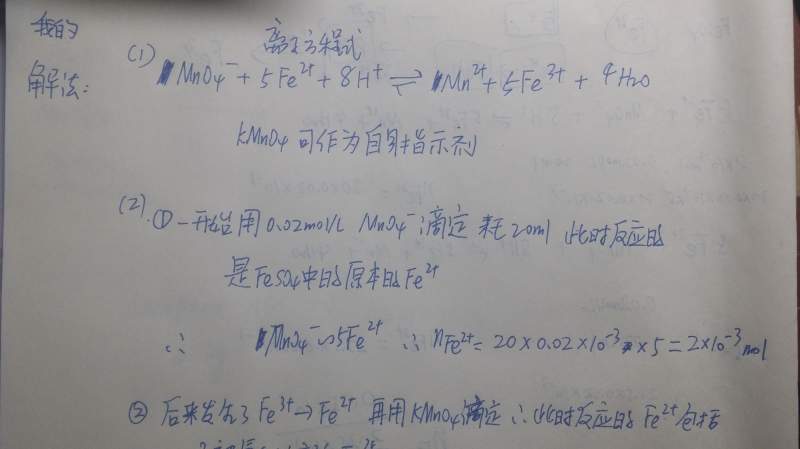 我的
解法:
离子方程式
(1) MnO4⁻ + 5Fe²⁺ + 8H⁺ ⇌ Mn²⁺ + 5Fe³⁺ + 4H2O
KMnO4 可作为自身指示剂
(2).① 一开始用0.02mol/L MnO4⁻滴定 耗20ml 此时反应的
是FeSO4中的原本的Fe²⁺
∴ MnO4⁻ ~ 5Fe²⁺ ∴ nFe²⁺ = 20×0.02×10⁻³ ×5 = 2×10⁻³ mol
② 后来发生了Fe³⁺→Fe²⁺ 再用KMnO4滴定 ∴此时反应的Fe²⁺包括